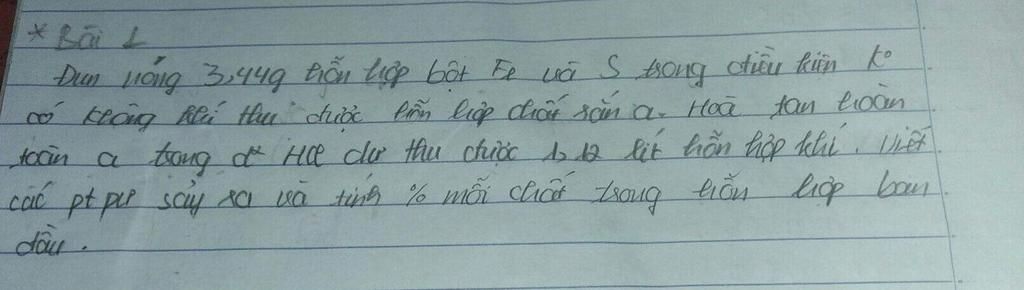 * Bài 1
Đun nóng 3,44g hỗn hợp bột Fe và S trong điều kiện k°
có không khí thu được hỗn hợp chất rắn a. Hoà tan hoàn
toàn a trong d² HCl dư thu được 1,12 lít hỗn hợp khí. Viết
các pt pư sảy ra và tính % mỗi chất trong hỗn hợp ban
đầu.